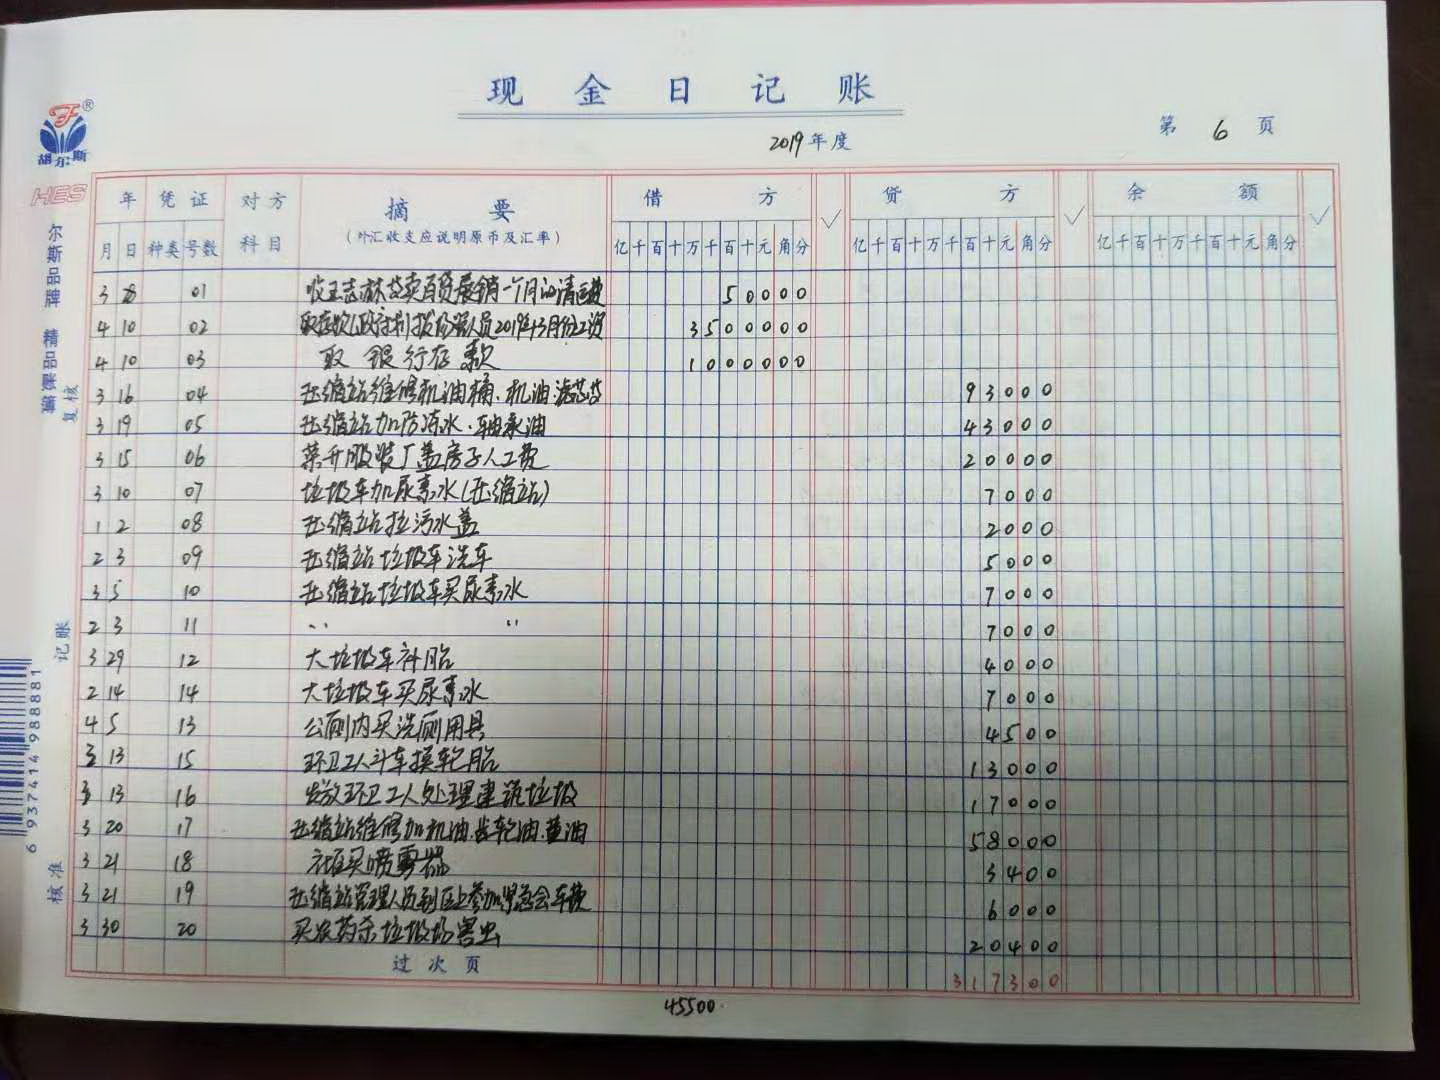 现金日记账
2019年度
第 6 页
胡尔斯
HES
尔斯品牌 精品
复核
记账
核准
6 937414 988881
年 凭证 对方科目 摘要 借方 √ 贷方 √ 余额 √
月 日 种类 号数 (外汇收支应说明原币及汇率) 亿千百十万千百十元角分 亿千百十万千百十元角分 亿千百十万千百十元角分
3 28 01 收王志林拉卖百货展销一个月的清运费 50000
4 10 02 2019年3月份工资 3500000
4 10 03 取银行存款 1000000
3 16 04 压缩站维修机油桶、机油滤芯 93000
3 19 05 压缩站加防冻水、轴承油 43000
3 15 06 菜开服装厂盖房子人工费 20000
3 10 07 垃圾车加尿素水(压缩站) 7000
1 2 08 压缩站拉污水盖 2000
2 3 09 压缩站垃圾车洗车 5000
3 5 10 压缩站垃圾车买尿素水 7000
2 3 11 〃 〃 7000
3 29 12 大垃圾车补胎 4000
2 14 14 大垃圾车买尿素水 7000
4 5 13 公厕内买洗厕用具 4500
3 13 15 环卫工人斗车换轮胎 13000
3 13 16 发放环卫工人处理建筑垃圾 17000
3 20 17 压缩站维修加机油、齿轮油、黄油 58000
3 21 18 社区买喷雾器 3400
3 21 19 压缩站管理人员到区上参加紧急会车费 6000
3 30 20 买农药杀垃圾场害虫 20400
过次页 317300
45500.